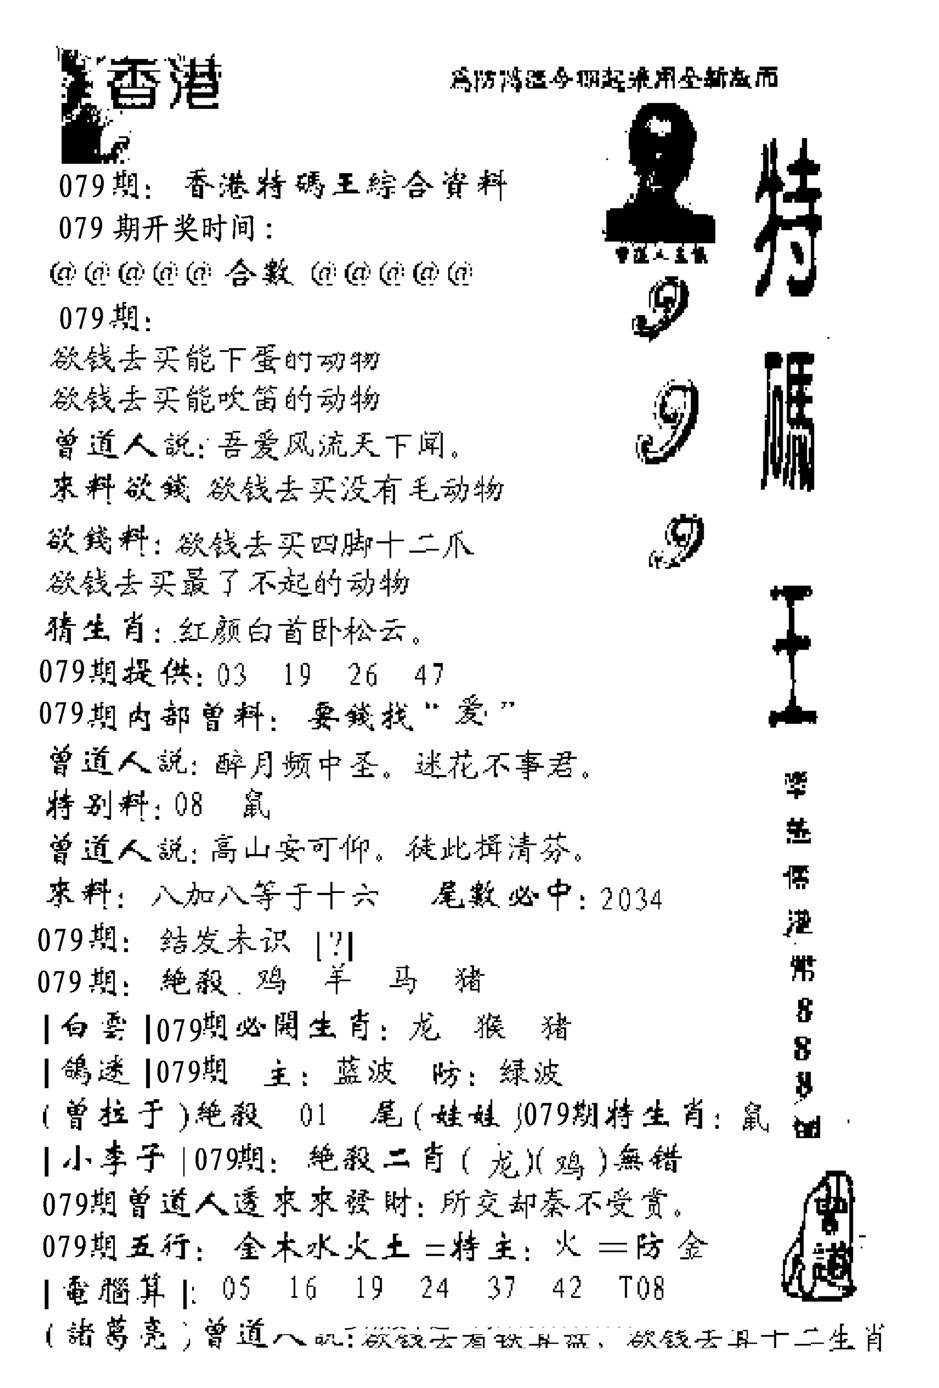 香港
為防濫今期起采用全新版面
079期: 香港特碼王綜合資料
079 期开奖时间:
@@@@@ 合數 @@@@@
079期:
欲钱去买能下蛋的动物
欲钱去买能吹笛的动物
曾道人説: 吾爱风流天下闻。
來料欲錢 欲钱去买没有毛动物
欲錢料: 欲钱去买四脚十二爪
欲钱去买最了不起的动物
猜生肖: 红颜白首卧松云。
079期提供: 03 19 26 47
079期内部曾料: 要錢找“爱”
曾道人説: 醉月频中圣。迷花不事君。
特别料: 08 鼠
曾道人説: 高山安可仰。徒此揖清芬。
來料: 八加八等于十六 尾數必中: 2034
079期: 结发未识 [?]
079期: 絶殺 鸡 羊 马 猪
|白雲|079期必開生肖: 龙 猴 猪
|鴿迷|079期 主: 蓝波 防: 绿波
(曾拉于)絶殺 01 尾(娃娃)079期特生肖: 鼠
|小李子|079期: 絶殺二肖(龙)(鸡)無錯
079期曾道人透來來發財: 所交却秦不受赏。
079期五行: 金木水火土=特主: 火 =防金
|電腦算|: 05 16 19 24 37 42 T08
(諸葛亮)曾道人説: 欲钱去十二生肖
曾道人
9
9
9
特碼王
港幣888
曾道